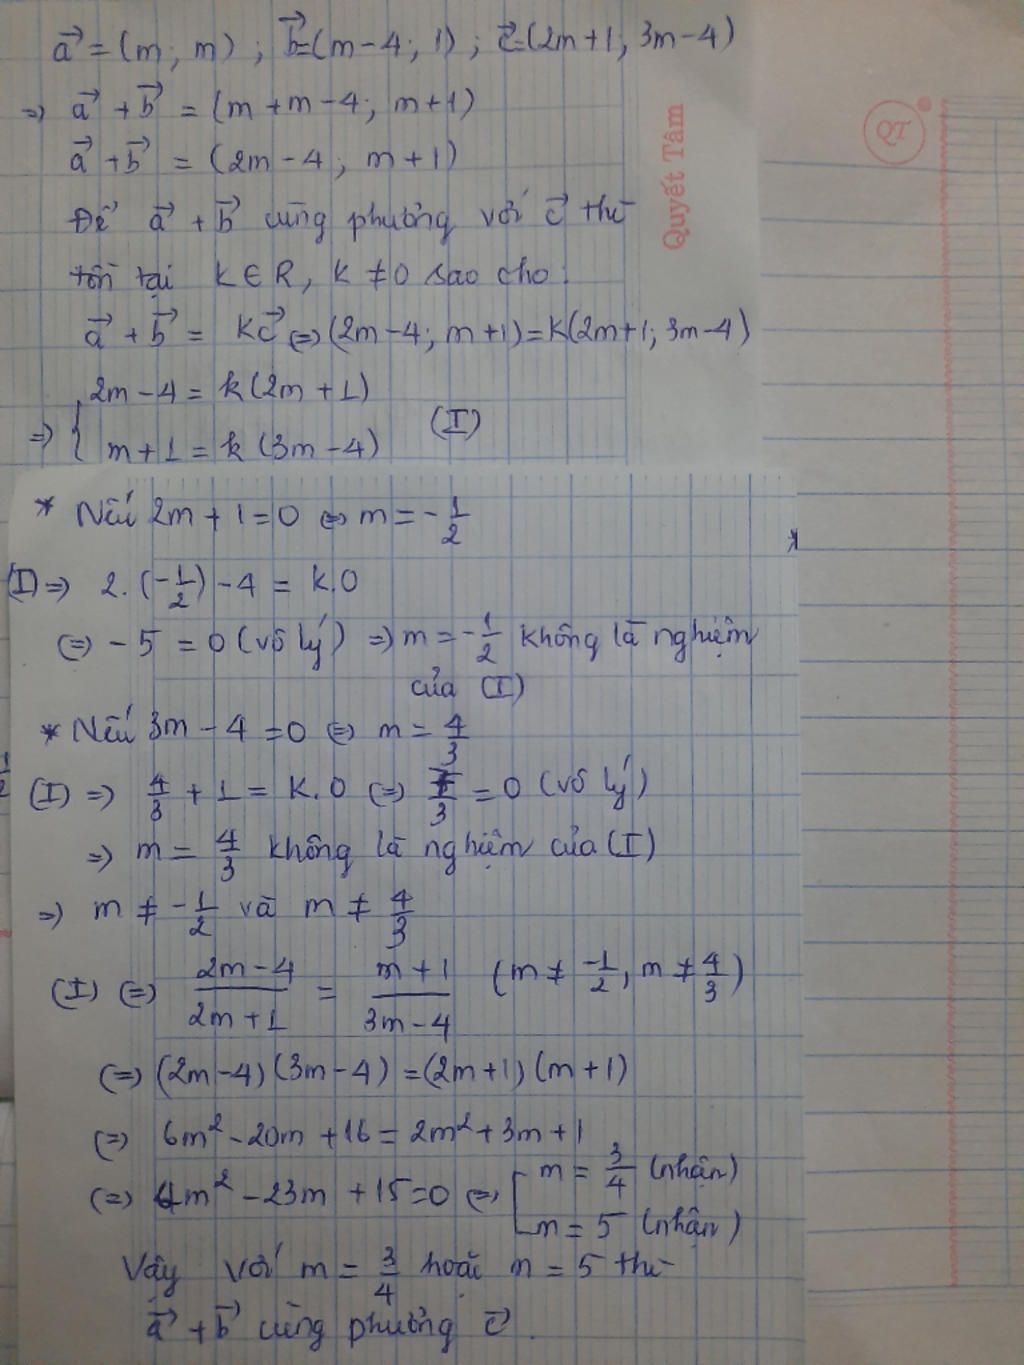 a⃗ = (m; m) ; b⃗ = (m-4; 1) ; c⃗ = (2m+1; 3m-4)
=> a⃗ + b⃗ = (m+m-4; m+1)
a⃗ + b⃗ = (2m-4; m+1)
Để a⃗ + b⃗ cùng phương với c⃗ thì
tồn tại k ∈ R, k ≠ 0 sao cho:
a⃗ + b⃗ = kc⃗ <=> (2m-4; m+1) = k(2m+1; 3m-4)
=> { 2m-4 = k(2m+1)
m+1 = k(3m-4) (I)
* Nếu 2m+1=0 <=> m = -1/2
(I) => 2.(-1/2) - 4 = k.0
<=> -5 = 0 (vô lý) => m = -1/2 không là nghiệm
của (I)
* Nếu 3m-4=0 <=> m = 4/3
(I) => 4/3 + 1 = k.0 <=> 7/3 = 0 (vô lý)
=> m = 4/3 không là nghiệm của (I)
=> m ≠ -1/2 và m ≠ 4/3
(I) <=> (2m-4)/(2m+1) = (m+1)/(3m-4) (m ≠ -1/2, m ≠ 4/3)
<=> (2m-4)(3m-4) = (2m+1)(m+1)
<=> 6m² - 20m + 16 = 2m² + 3m + 1
<=> 4m² - 23m + 15 = 0 <=> [ m = 3/4 (nhận)
m = 5 (nhận)
Vậy với m = 3/4 hoặc m = 5 thì
a⃗ + b⃗ cùng phương c⃗.
Quyết Tâm
QT